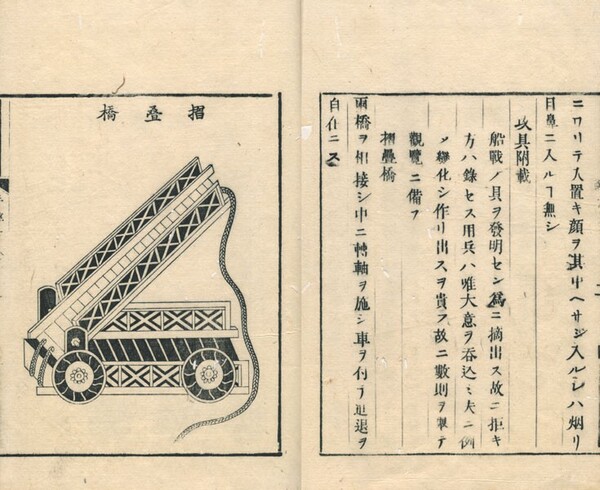 ニワリテ入置キ顔ヲ其中ヘサシ入ルレハ烟リ
目鼻ニ入ルヿ無シ
攻具附載
船戦ノ具ヲ發明センヿ為ニ摘出ス故ニ拒キ
方ハ錄セス用兵ハ唯大意ヲ吞込ミ夫ニ例
メ變化シ作リ出スヲ貴フ故ニ數則ヲ擧テ
觀覽ニ備フ
摺疊橋
兩橋ヲ相接シ中ニ轉軸ヲ施シ車ヲ付テ進退ヲ
自在ニス
摺疊橋